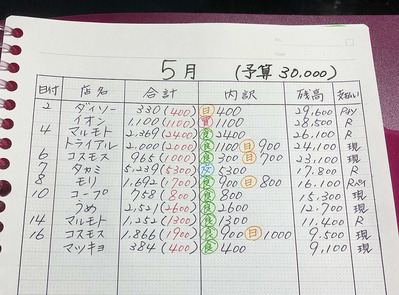 5月 (予算 30,000)
日付 店名 合計 内訳 残高 支払い
2 ダイソー 330 (400) 日 400 29,600 Pay
イオン 1,100 (1100) 1100 28,500 R
4 マルモト 2,369 (2400) 食 2400 26,100 R
トライアル 2,000 (2000) 食 1100 日 900 24,100 現
6 コスモス 965 (1000) 食 300 日 700 23,100 現
7 タカミ 5,239 (5300) 5300 17,800 R
8 モリ 1,692 (1700) 食 900 日 800 16,100
10 コープ 758 (800) 食 800 15,300 現
うめ 2,521 (2600) 食 2600 12,700 現
14 マルモト 1,252 (1300) 食 1300 11,400 R
16 コスモス 1,866 (1900) 食 900 日 1000 9,500 現
マツキヨ 384 (400) 食 400 9,100 現